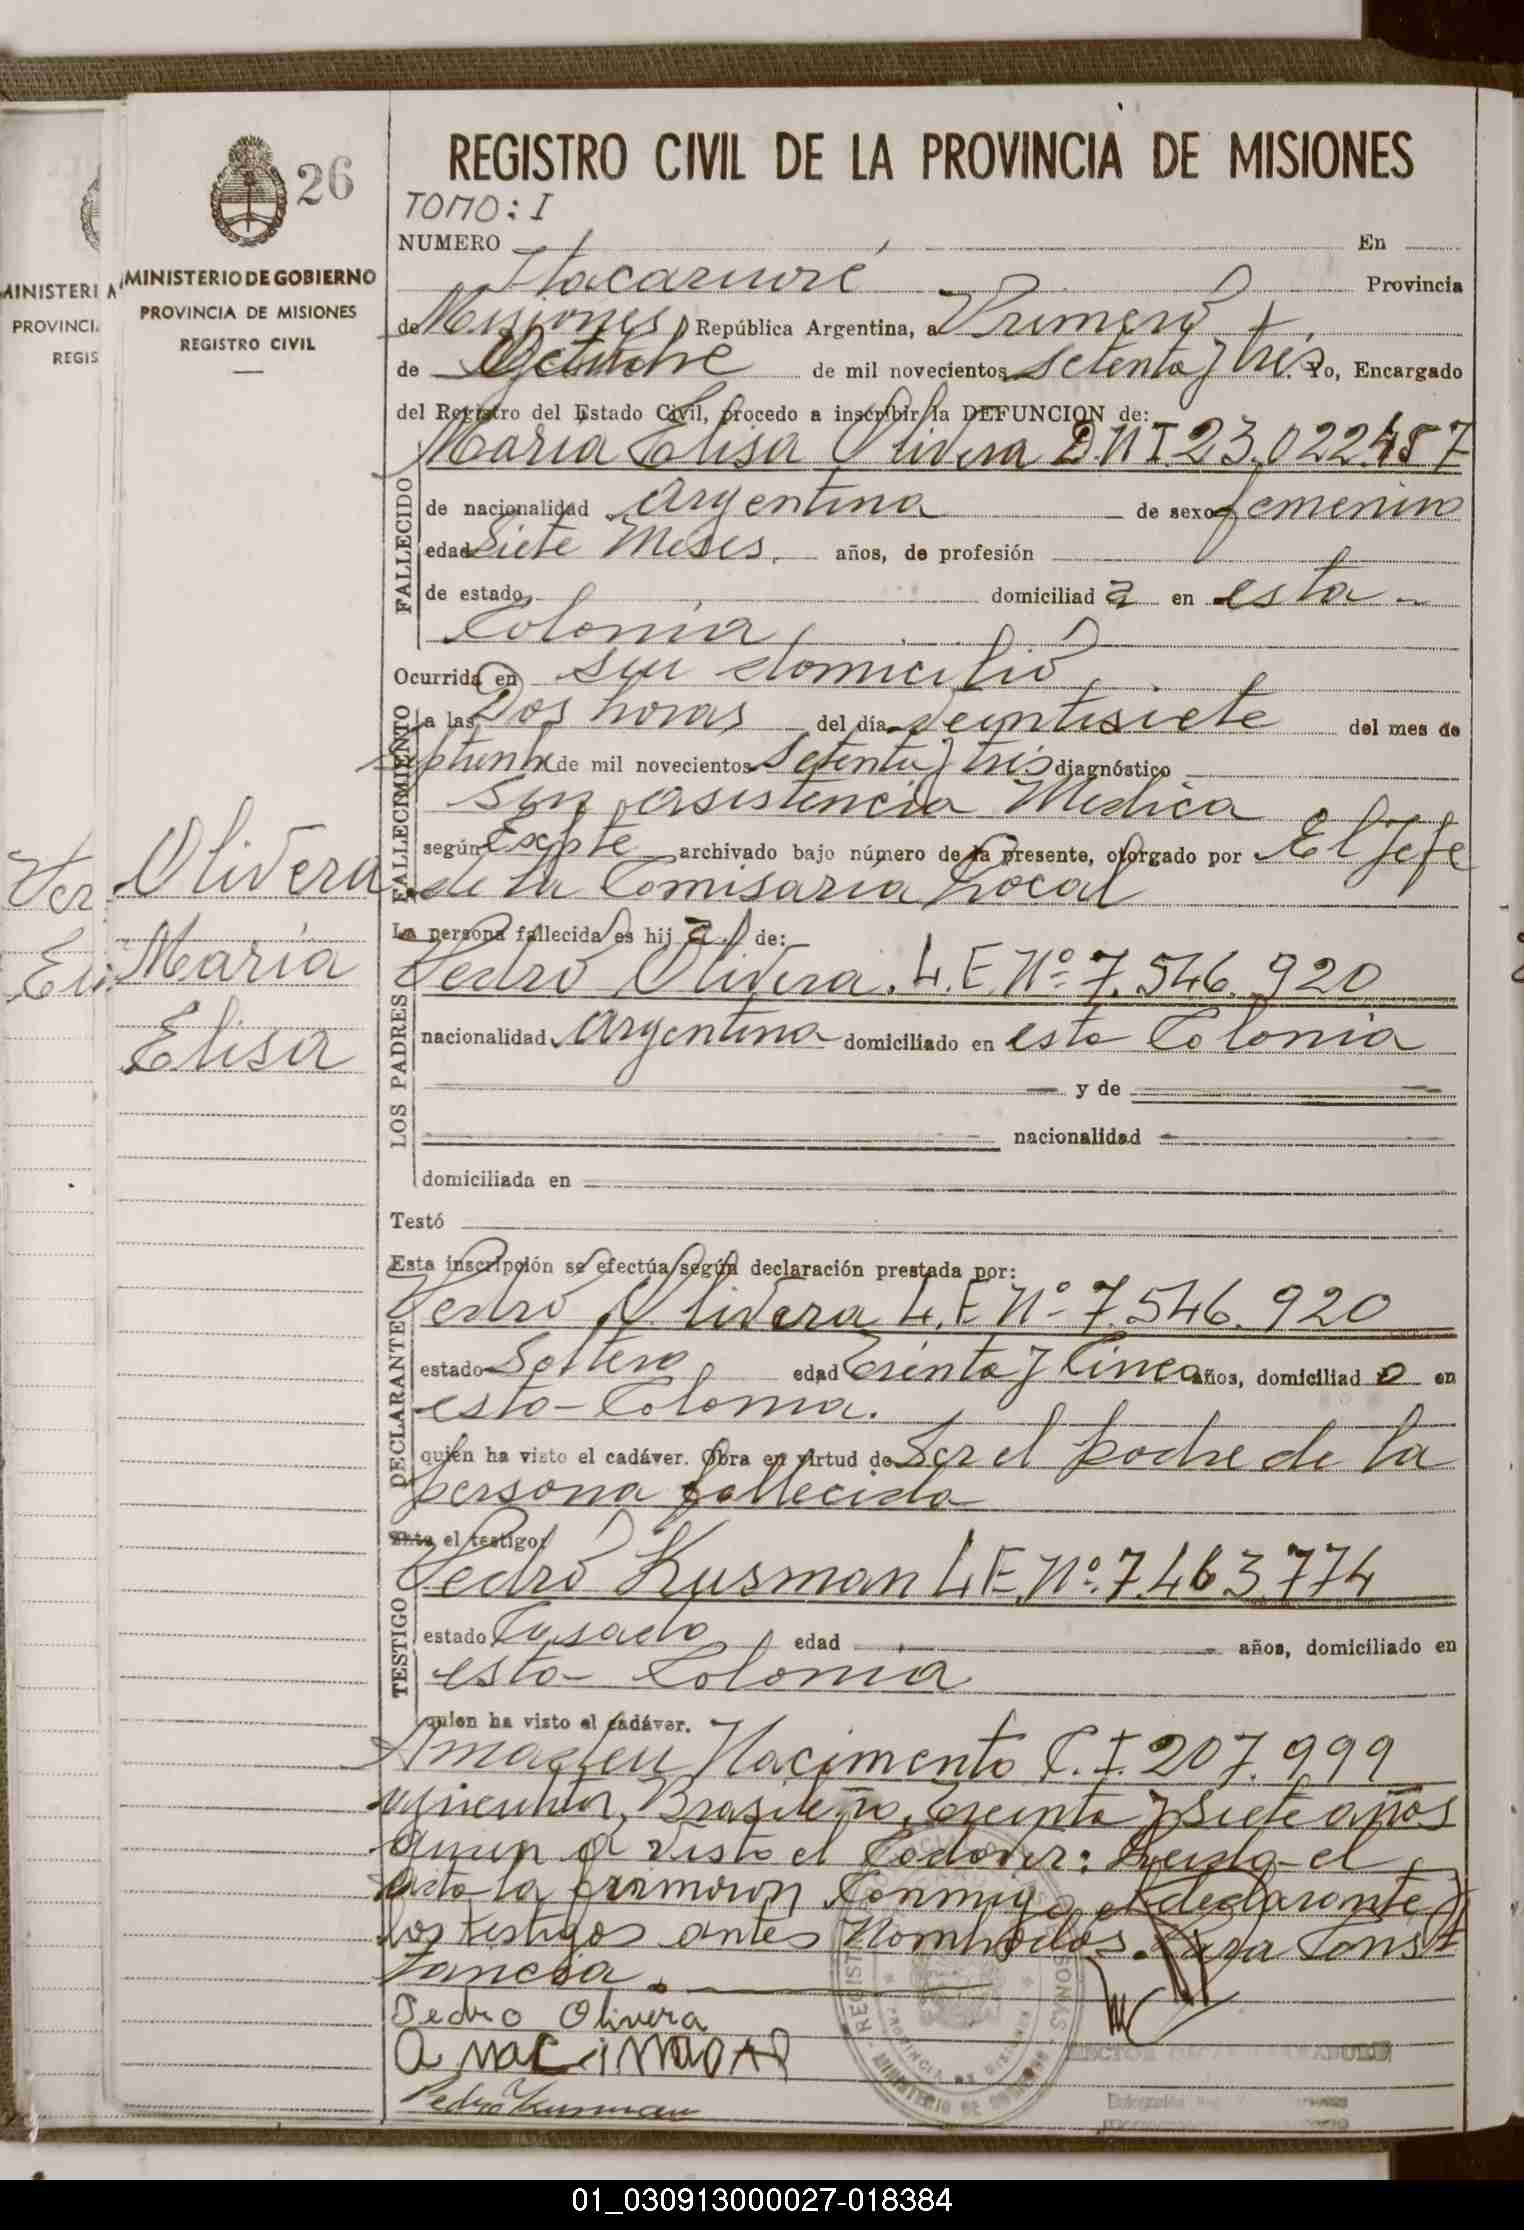 26
MINISTERIO DE GOBIERNO
PROVINCIA DE MISIONES
REGISTRO CIVIL
MINISTERI
PROVINCI
REGIS
Olivera
María
Elisa
REGISTRO CIVIL DE LA PROVINCIA DE MISIONES
TOMO: I
NUMERO En
Itacaruaré Provincia
de Misiones República Argentina, a Primero
de Octubre de mil novecientos setenta y tres Yo, Encargado
del Registro del Estado Civil, procedo a inscribir la DEFUNCION de:
FALLECIDO
María Elisa Olivera D.N.I. 23.022.487
de nacionalidad argentina de sexo femenino
edad Siete Meses, años, de profesión
de estado domiciliad a en esta
Colonia,
Ocurrida en su domicilio,
FALLECIMIENTO
a las Dos horas del día veintisiete del mes de
septiembre de mil novecientos Setenta y tres diagnóstico
Sin asistencia Medica
según Expte archivado bajo número de la presente, otorgado por El Jefe
de la Comisaria Local
La persona fallecida es hij a de:
LOS PADRES
Pedro Olivera. L.E. Nº 7.546.920
nacionalidad Argentina domiciliado en esta Colonia
y de
nacionalidad
domiciliada en
Testó
Esta inscripción se efectúa según declaración prestada por:
DECLARANTE
Pedro Olivera L.E. Nº 7.546.920
estado Soltero edad Treinta y Cinco años, domiciliad o en
esta Colonia.
quien ha visto el cadáver. Obra en virtud de Ser el padre de la
persona fallecida
Ante el testigo:
TESTIGO
Pedro Kusman L.E. Nº 7.463.774
estado Casado edad años, domiciliado en
esta Colonia
quien ha visto el cadáver.
Amadeu Nacimento C.I. 207.999
agricultor, Brasileño, Treinta y Siete años
quien a visto el Cadaver: Leida el
acta la firmaron Conmigo el declarante y
los testigos antes Nombrados. Para Cons
tancia.
Pedro Olivera
Pedro Kusman
01_030913000027-018384